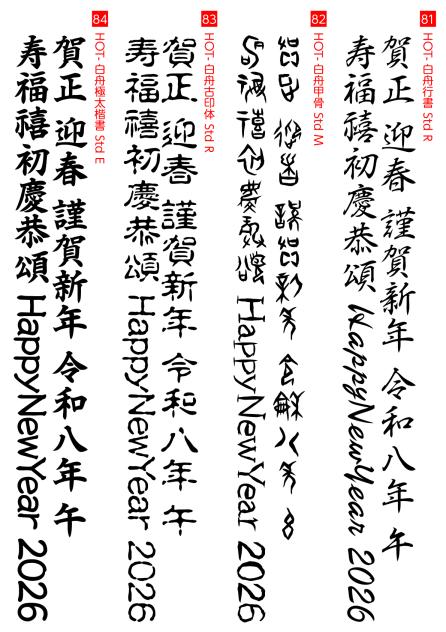 81
HOT-白舟行書 Std R
賀正 迎春 謹賀新年 令和八年 午
寿福禧初慶恭頌 HappyNewYear 2026
82
HOT-白舟甲骨 Std M
賀正 迎春 謹賀新年 令龢八年 午
寿福禧初慶恭頌 HappyNewYear 2026
83
HOT-白舟古印体 Std R
賀正 迎春 謹賀新年 令和八年 午
寿福禧初慶恭頌 HappyNewYear 2026
84
HOT-白舟極太楷書 Std E
賀正 迎春 謹賀新年 令和八年 午
寿福禧初慶恭頌 HappyNewYear 2026